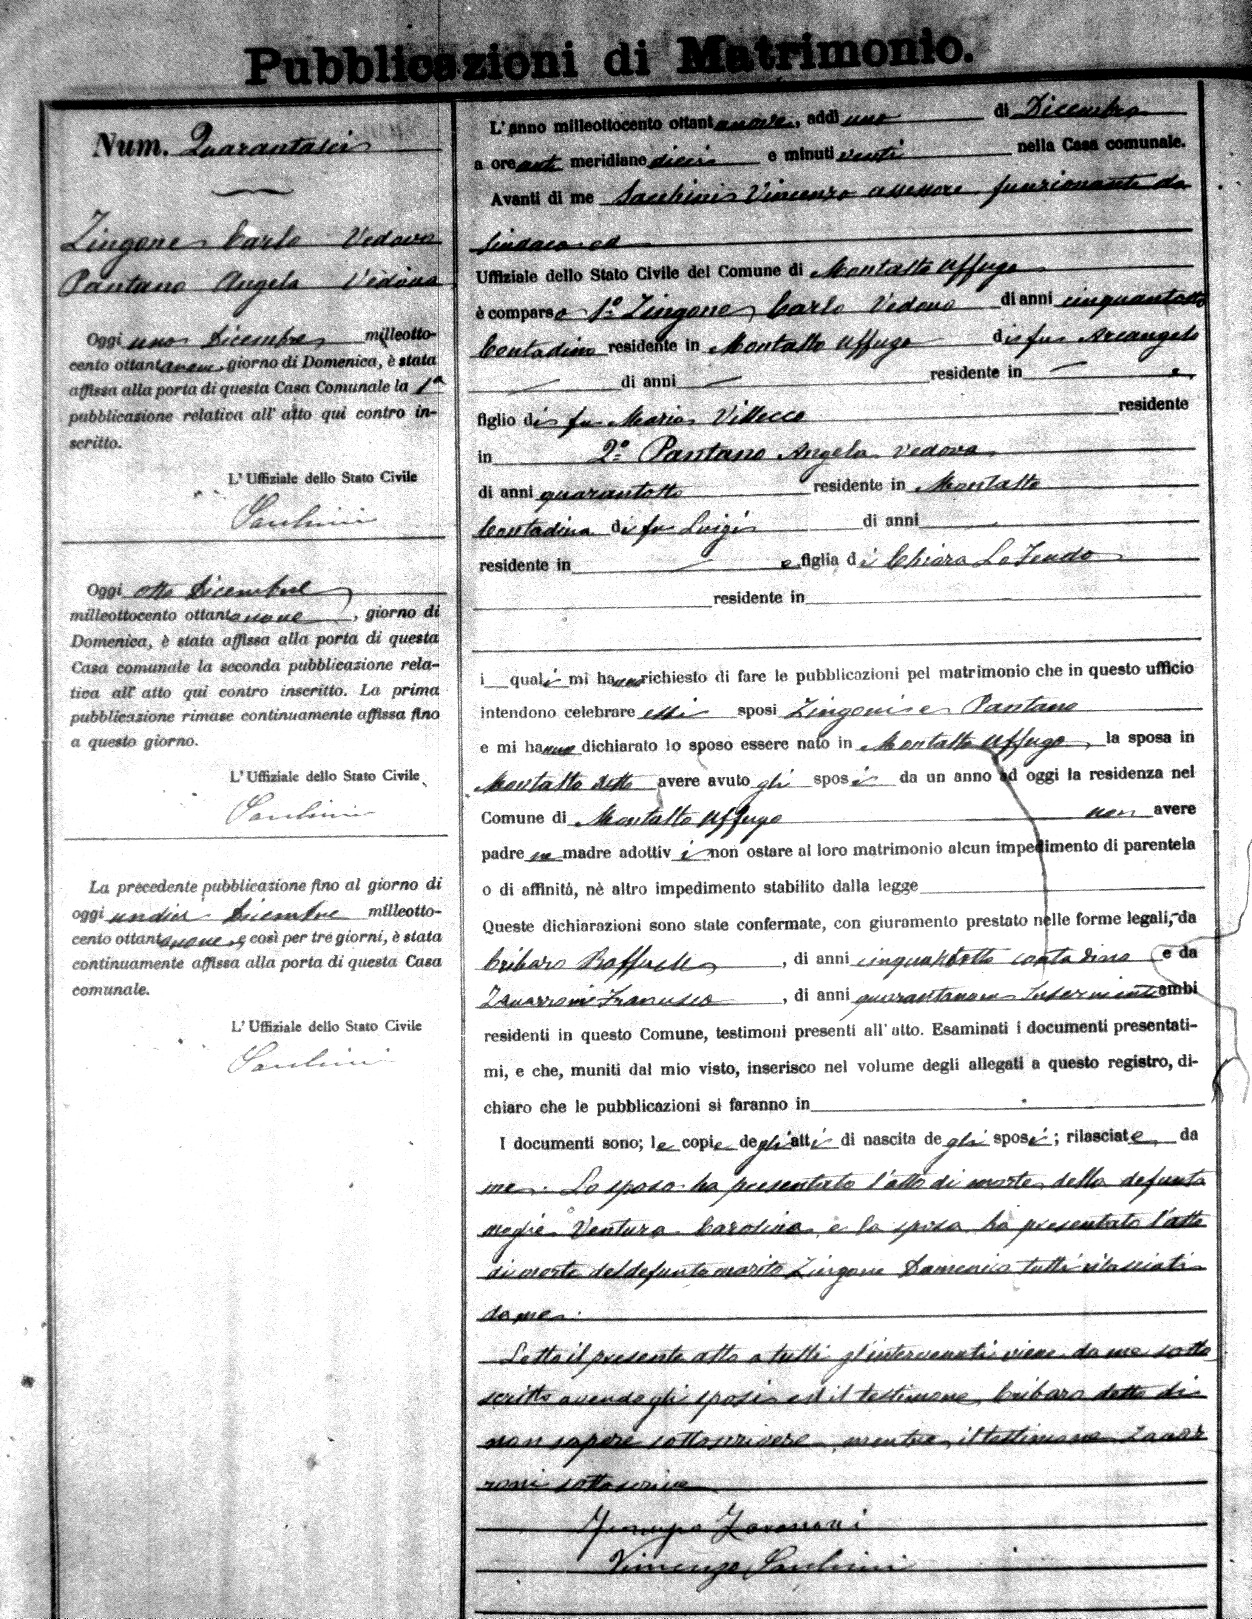 Pubblicazioni di Matrimonio.
Num. Quarantasei
Zingone Carlo Vedovo
Pantano Angela Vedova
Oggi uno Dicembre milleotto-
cento ottantanove, giorno di Domenica, è stata
affissa alla porta di questa Casa Comunale la 1a
pubblicazione relativa all' atto qui contro in-
scritto.
L' Uffiziale dello Stato Civile
Sacchini
Oggi otto Dicembre
milleottocento ottantanove, giorno di
Domenica, è stata affissa alla porta di questa
Casa comunale la seconda pubblicazione rela-
tiva all' atto qui contro inscritto. La prima
pubblicazione rimase continuamente affissa fino
a questo giorno.
L' Uffiziale dello Stato Civile
Sacchini
La precedente pubblicazione fino al giorno di
oggi undici Dicembre milleotto-
cento ottantanove, e così per tre giorni, è stata
continuamente affissa alla porta di questa Casa
comunale.
L' Uffiziale dello Stato Civile
Sacchini
L' anno milleottocento ottantanove, addì uno di Dicembre
a ore anti meridiane dieci e minuti venti nella Casa comunale.
Avanti di me Sacchini Vincenzo assessore funzionante da
Sindaco ed
Uffiziale dello Stato Civile del Comune di Montalto Uffugo
è comparso 1° Zingone Carlo Vedovo di anni cinquantotto
Contadino residente in Montalto Uffugo di fu Arcangelo
di anni residente in e
figlio di fu Maria Villecco residente
in 2° Pantano Angela vedova
di anni quarantotto residente in Montalto
Contadina di fu Luigi di anni
residente in e figlia di Chiara Lo Feudo
residente in
i quali mi hanno richiesto di fare le pubblicazioni pel matrimonio che in questo ufficio
intendono celebrare essi sposi Zingoni e Pantano
e mi hanno dichiarato lo sposo essere nato in Montalto Uffugo, la sposa in
Montalto detto avere avuto gli sposi da un anno ad oggi la residenza nel
Comune di Montalto Uffugo non avere
padre ne madre adottivi non ostare al loro matrimonio alcun impedimento di parentela
o di affinità, nè altro impedimento stabilito dalla legge
Queste dichiarazioni sono state confermate, con giuramento prestato nelle forme legali, da
Cribaro Raffaele, di anni cinquantotto contadino e da
Zavarroni Francesco, di anni quarantanove Inserviente ambi
residenti in questo Comune, testimoni presenti all' atto. Esaminati i documenti presentati-
mi, e che, muniti dal mio visto, inserisco nel volume degli allegati a questo registro, di-
chiaro che le pubblicazioni si faranno in
I documenti sono; le copie degli atti di nascita degli sposi; rilasciate da
me. Lo sposo ha presentato l'atto di morte della defunta
moglie Ventura Carolina, e la sposa ha presentato l'atto
di morte del defunto marito Zingone Domenico tutti rilasciati
da me.
Letto il presente atto a tutti gl'intervenuti viene da me sotto
scritto avendo gli sposi ed il testimone Cribaro detto di
non sapere sottoscrivere, mentre il testimone Zavar
roni sottoscrive
Zavarroni
Vincenzo Sacchini